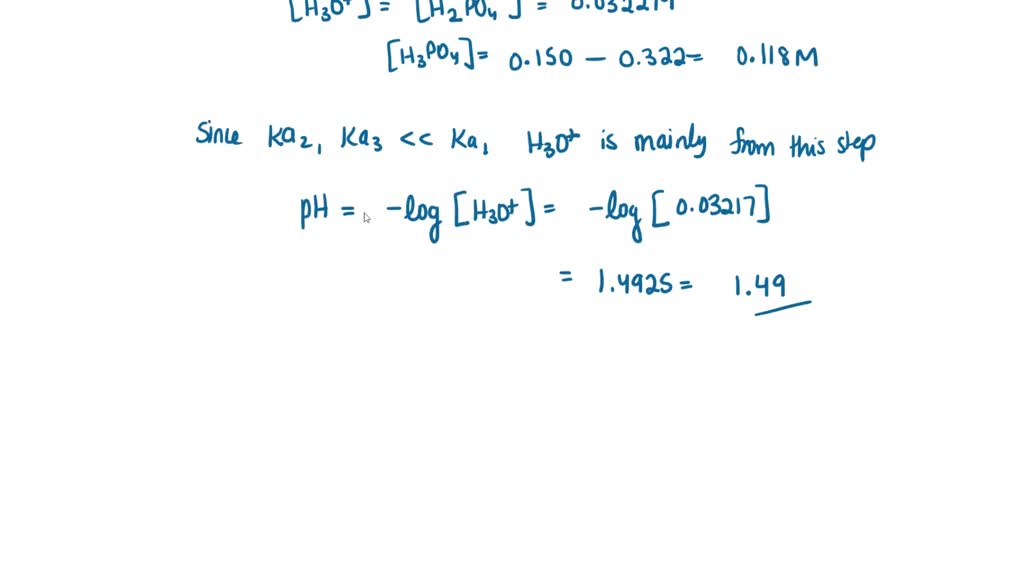 [H₃O⁺] = [H₂PO₄⁻] = 0.0322M
[H₃PO₄] = 0.150 – 0.322 = 0.118M
Since Ka₂, Ka₃ << Ka₁ H₃O⁺ is mainly from this step
pH = -log [H₃O⁺] = -log [0.03217]
= 1.4925 = 1.49